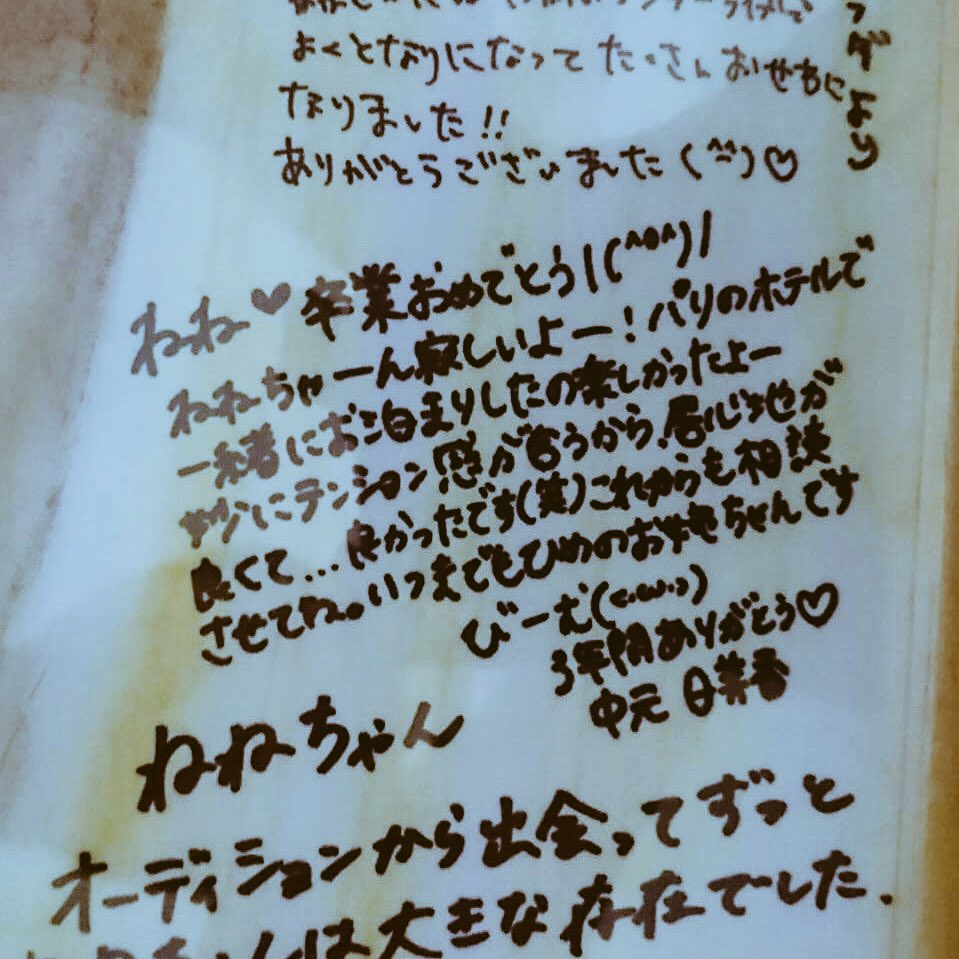 よくとなりになって たくさん おせわに
なりました!!
ありがとうございました (^^)♡
より
ねね♥卒業おめでとう\(^o^)/
ねねちゃーん寂しいよー!パリのホテルで
一緒にお泊まりしたの楽しかったよー
妙にテンション感が合うから、居心地が
良くて...良かったです(笑)これからも相談
させてね。いつまでもひめのお姉ちゃんです
びーむ(<・ω・>)
3年間ありがとう♡
中元 日芽香
ねねちゃん
オーディションから出会ってずっと
は大きな存在でした.